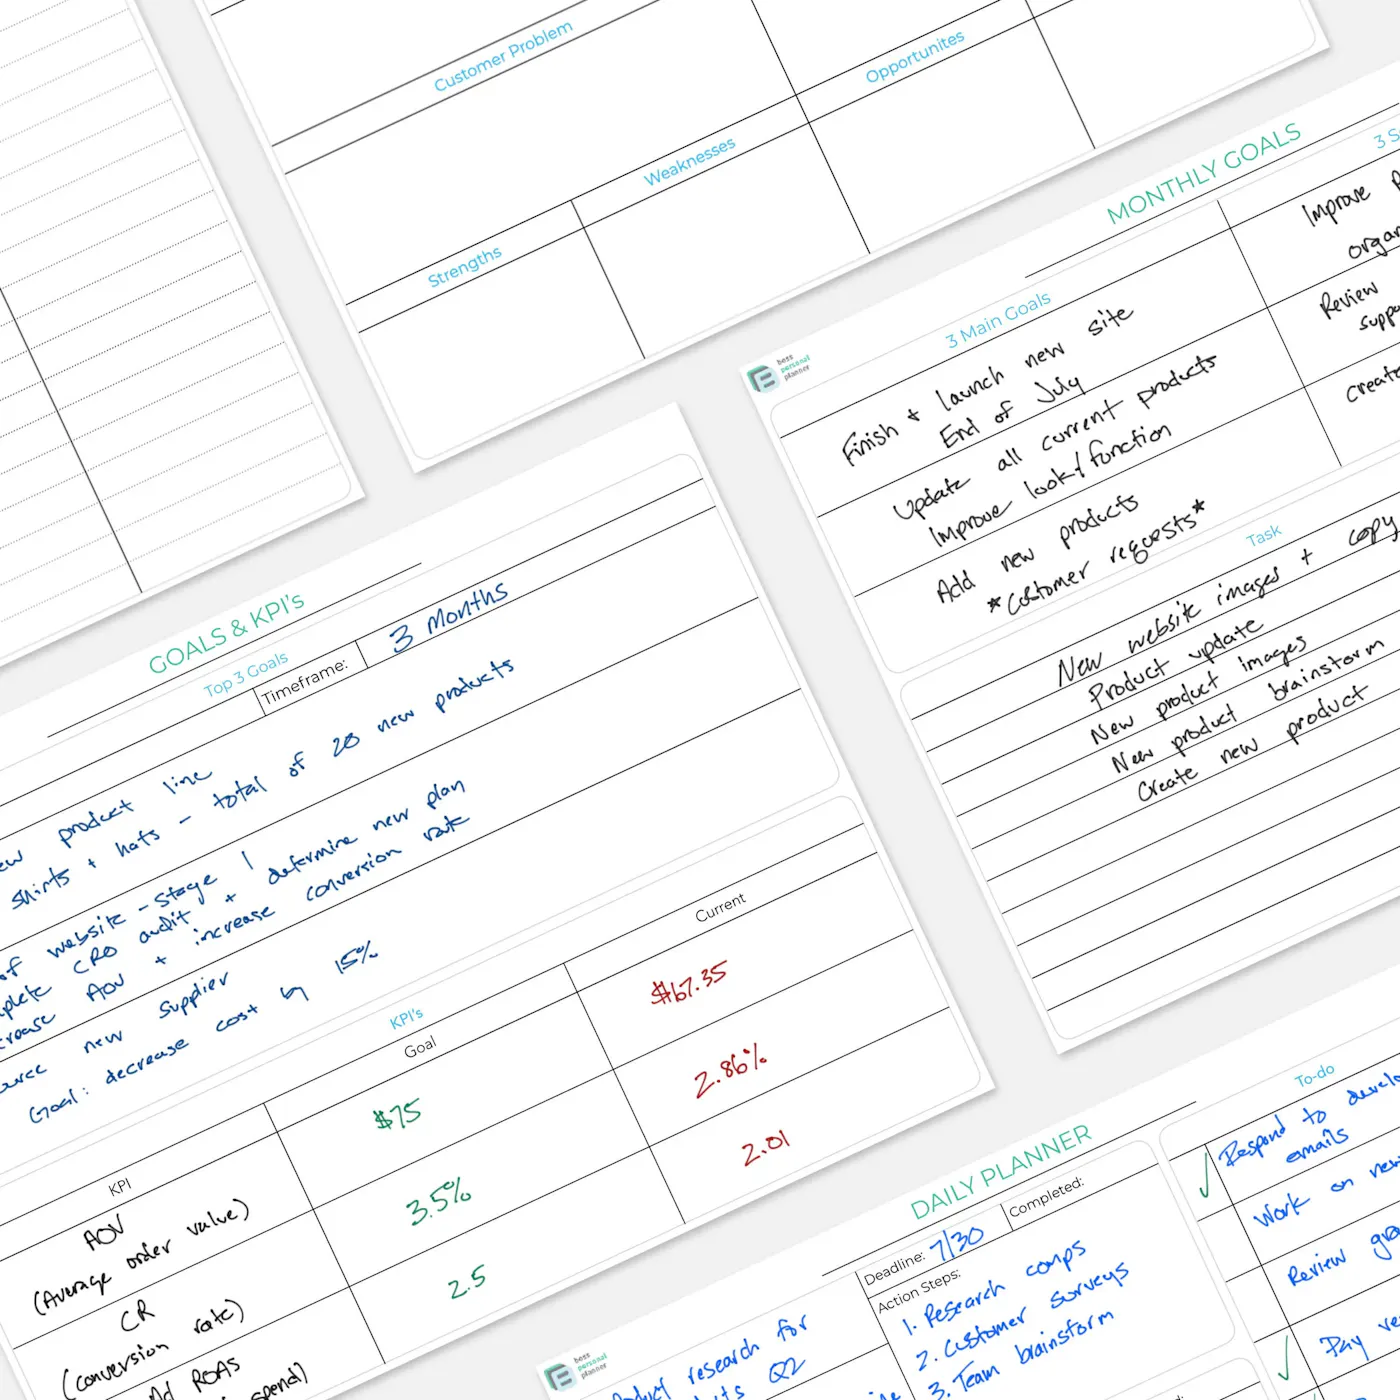 Customer Problem
Opportunites
Weaknesses
Strengths
MONTHLY GOALS
3 Main Goals
boss
personal
planner
Finish + launch new site
End of July
Update all current products
Improve look + function
Add new products
*customer requests*
Improve
Review
Create
Task
New website images + copy
Product update
New product images
New product brainstorm
Create new product
GOALS & KPI's
Top 3 Goals
Timeframe:
3 Months
product line
shirts + hats - total of 20 new products
of website - Stage 1
CRO audit + determine new plan
AOV + increase conversion rate
new supplier
Goal: decrease cost by 15%
KPI's
KPI
Goal
Current
AOV
(Average order value)
$75
$67.35
CR
(conversion rate)
3.5%
2.86%
ROAS
spend)
2.5
2.01
DAILY PLANNER
Deadline: 7/30
Completed:
Action Steps:
1. Research comps
2. Customer surveys
3. Team brainstorm
boss
personal
planner
research for
Q2
To-do
Respond to
emails
Work on
Review
Pay